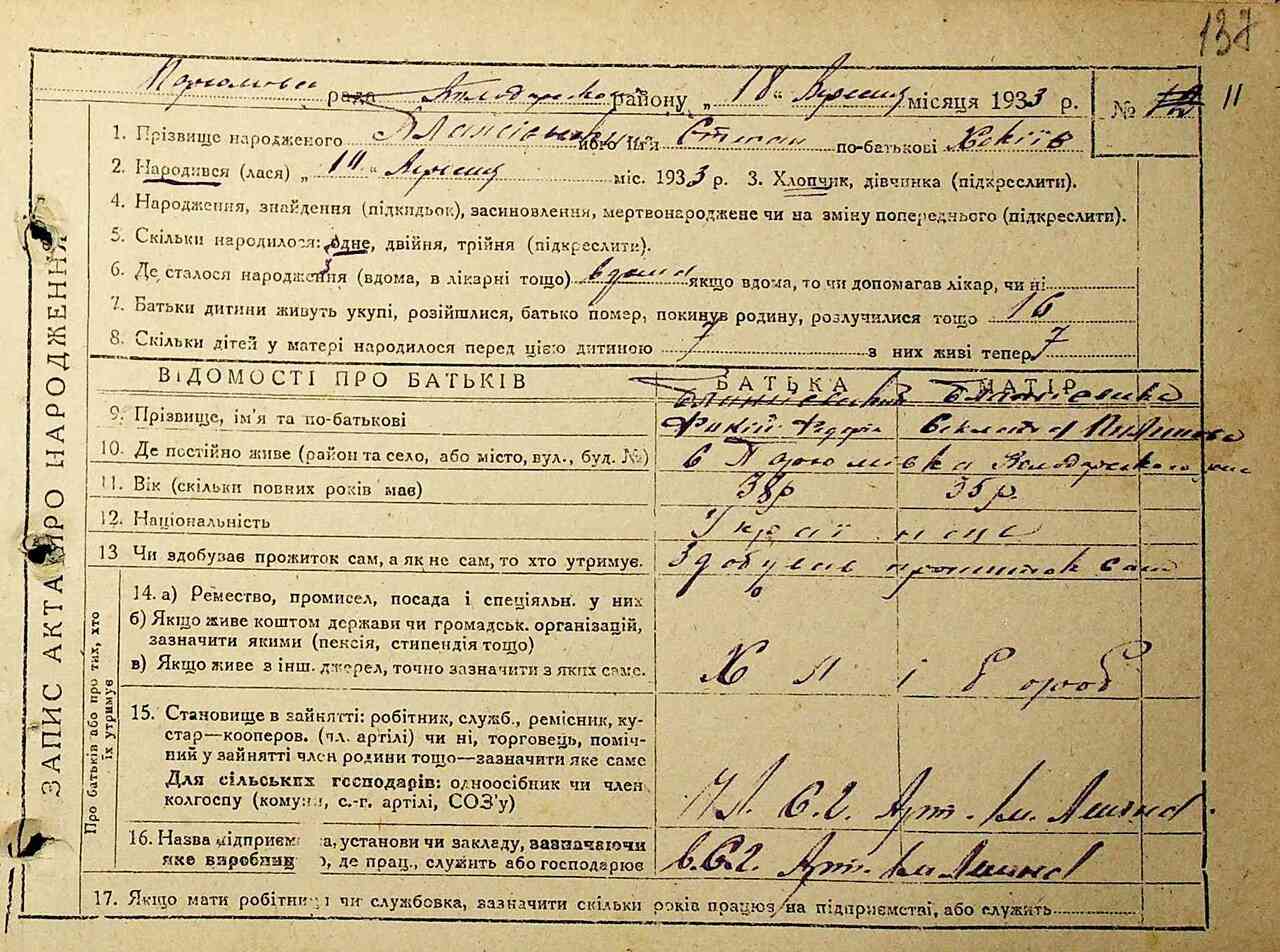 137
рада району „ 18 “ Вересня місяця 1933 р. № 11
1. Прізвище народженого його ім'я Степан по-батькові
2. Народився (лася) „ “ Вересня міс. 1933 р. 3. Хлопчик, дівчинка (підкреслити).
4. Народження, знайдення (підкидьок), засиновлення, мертвонароджене чи на зміну попереднього (підкреслити).
5. Скільки народилося: одне, двійня, трійня (підкреслити).
6. Де сталося народження (вдома, в лікарні тощо) вдома якщо вдома, то чи допомагав лікар, чи ні
7. Батьки дитини живуть укупі, розійшлися, батько помер, покинув родину, розлучилися тощо 16
8. Скільки дітей у матері народилося перед цією дитиною 7 з них живі тепер 7
ВІДОМОСТІ ПРО БАТЬКІВ БАТЬКА МАТІР
9. Прізвище, ім'я та по-батькові
10. Де постійно живе (район та село, або місто, вул., буд. №) Володарського
11. Вік (скільки повних років має) 38р 35р.
12. Національність Українце
13 Чи здобував прожиток сам, а як не сам, то хто утримує. Здобував прожиток сам
ЗАПИС АКТА ПРО НАРОДЖЕННЯ
Про батьків або про тих, хто їх утримує
14. а) Ремество, промисел, посада і спеціяльн. у них
б) Якщо живе коштом держави чи громадськ. організацій,
зазначити якими (пенсія, стипендія тощо)
в) Якщо живе з інш. джерел, точно зазначити з яких саме. Хлібороб
15. Становище в зайнятті: робітник, служб., ремісник, ку-
стар—кооперов. (чл. артілі) чи ні, торговець, поміч-
ний у зайнятті член родини тощо—зазначити яке саме
Для сільських господарів: одноосібник чи член
колгоспу (комуни, с.-г. артілі, СОЗ'у) Чл. С.г. Арт. Ім. Леніна.
16. Назва підприєм а, установи чи закладу, зазначаючи
яке виробниц , де прац., служить або господарює в С.г. Арт. Ім Леніна
17. Якщо мати робітниця чи службовка, зазначити скільки років працює на підприємстві, або служить